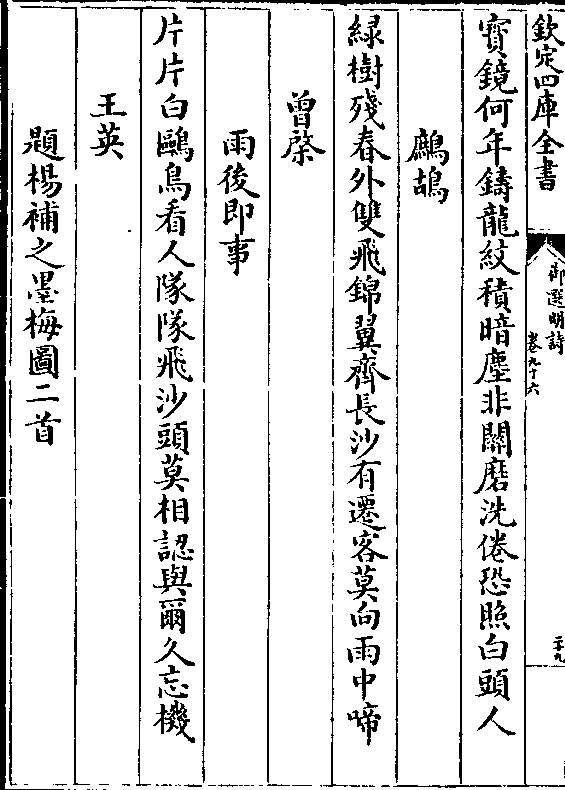 欽定四庫全書
御選明詩
卷九十六
二十九
寳鏡何年鑄龍紋積暗塵非闗磨洗倦恐照白頭人
鷓鴣
緑樹殘春外雙飛錦翼齊長沙有遷客莫向雨中啼
曾棨
雨後即事
片片白鷗鳥看人隊隊飛沙頭莫相認與爾久忘機
王英
題楊補之墨梅圖二首